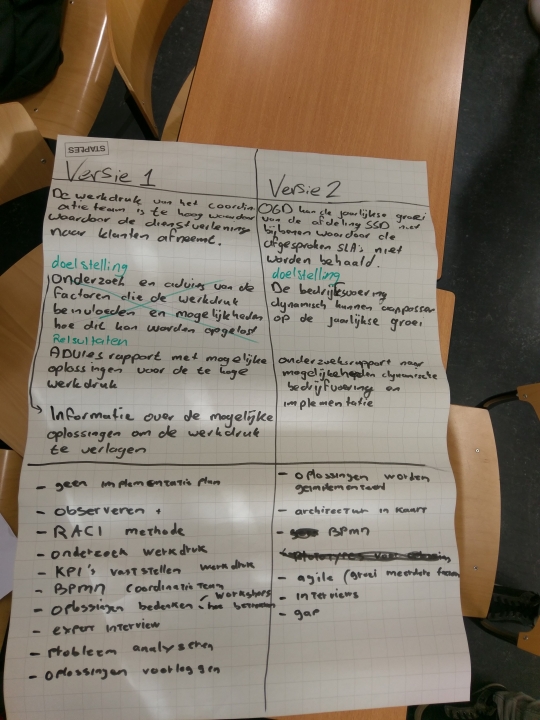 STAPLES
Versie 1
De werkdruk van het coordin
atieteam is te hoog waardoor
waardoor de dienstverlening
naar klanten afneemt.
doelstelling
Onderzoek en advies van de
factoren die de werkdruk
beinvloeden en mogelijkheden
hoe dit kan worden opgelost
Resultaten
Adviesrapport met mogelijke
oplossingen voor de te hoge
werkdruk
Informatie over de mogelijke
oplossingen om de werkdruk
te verlagen
Versie 2
OGD kan de jaarlijkse groei
van de afdeling SSD niet
bijbenen waardoor de
afgesproken SLA's niet
worden behaald.
doelstelling
De bedrijfsvoering
dynamisch kunnen aanpassen
op de jaarlijkse groei
onderzoeksrapport naar
mogelijkheden dynamische
bedrijfvoering en
implementatie
- geen implementatie plan
- observeren +
- RACI methode
- onderzoek werkdruk
- KPI's vaststellen werkdruk
- BPMN coordinatieteam
- oplossingen bedenken workshops
- expert interview
- Probleem analyseren
- oplossingen voorleggen
- oplossingen worden
geimplementeerd
- architectuur in kaart
- BPMN
- agile (groei meerdere
- interviews
- gap